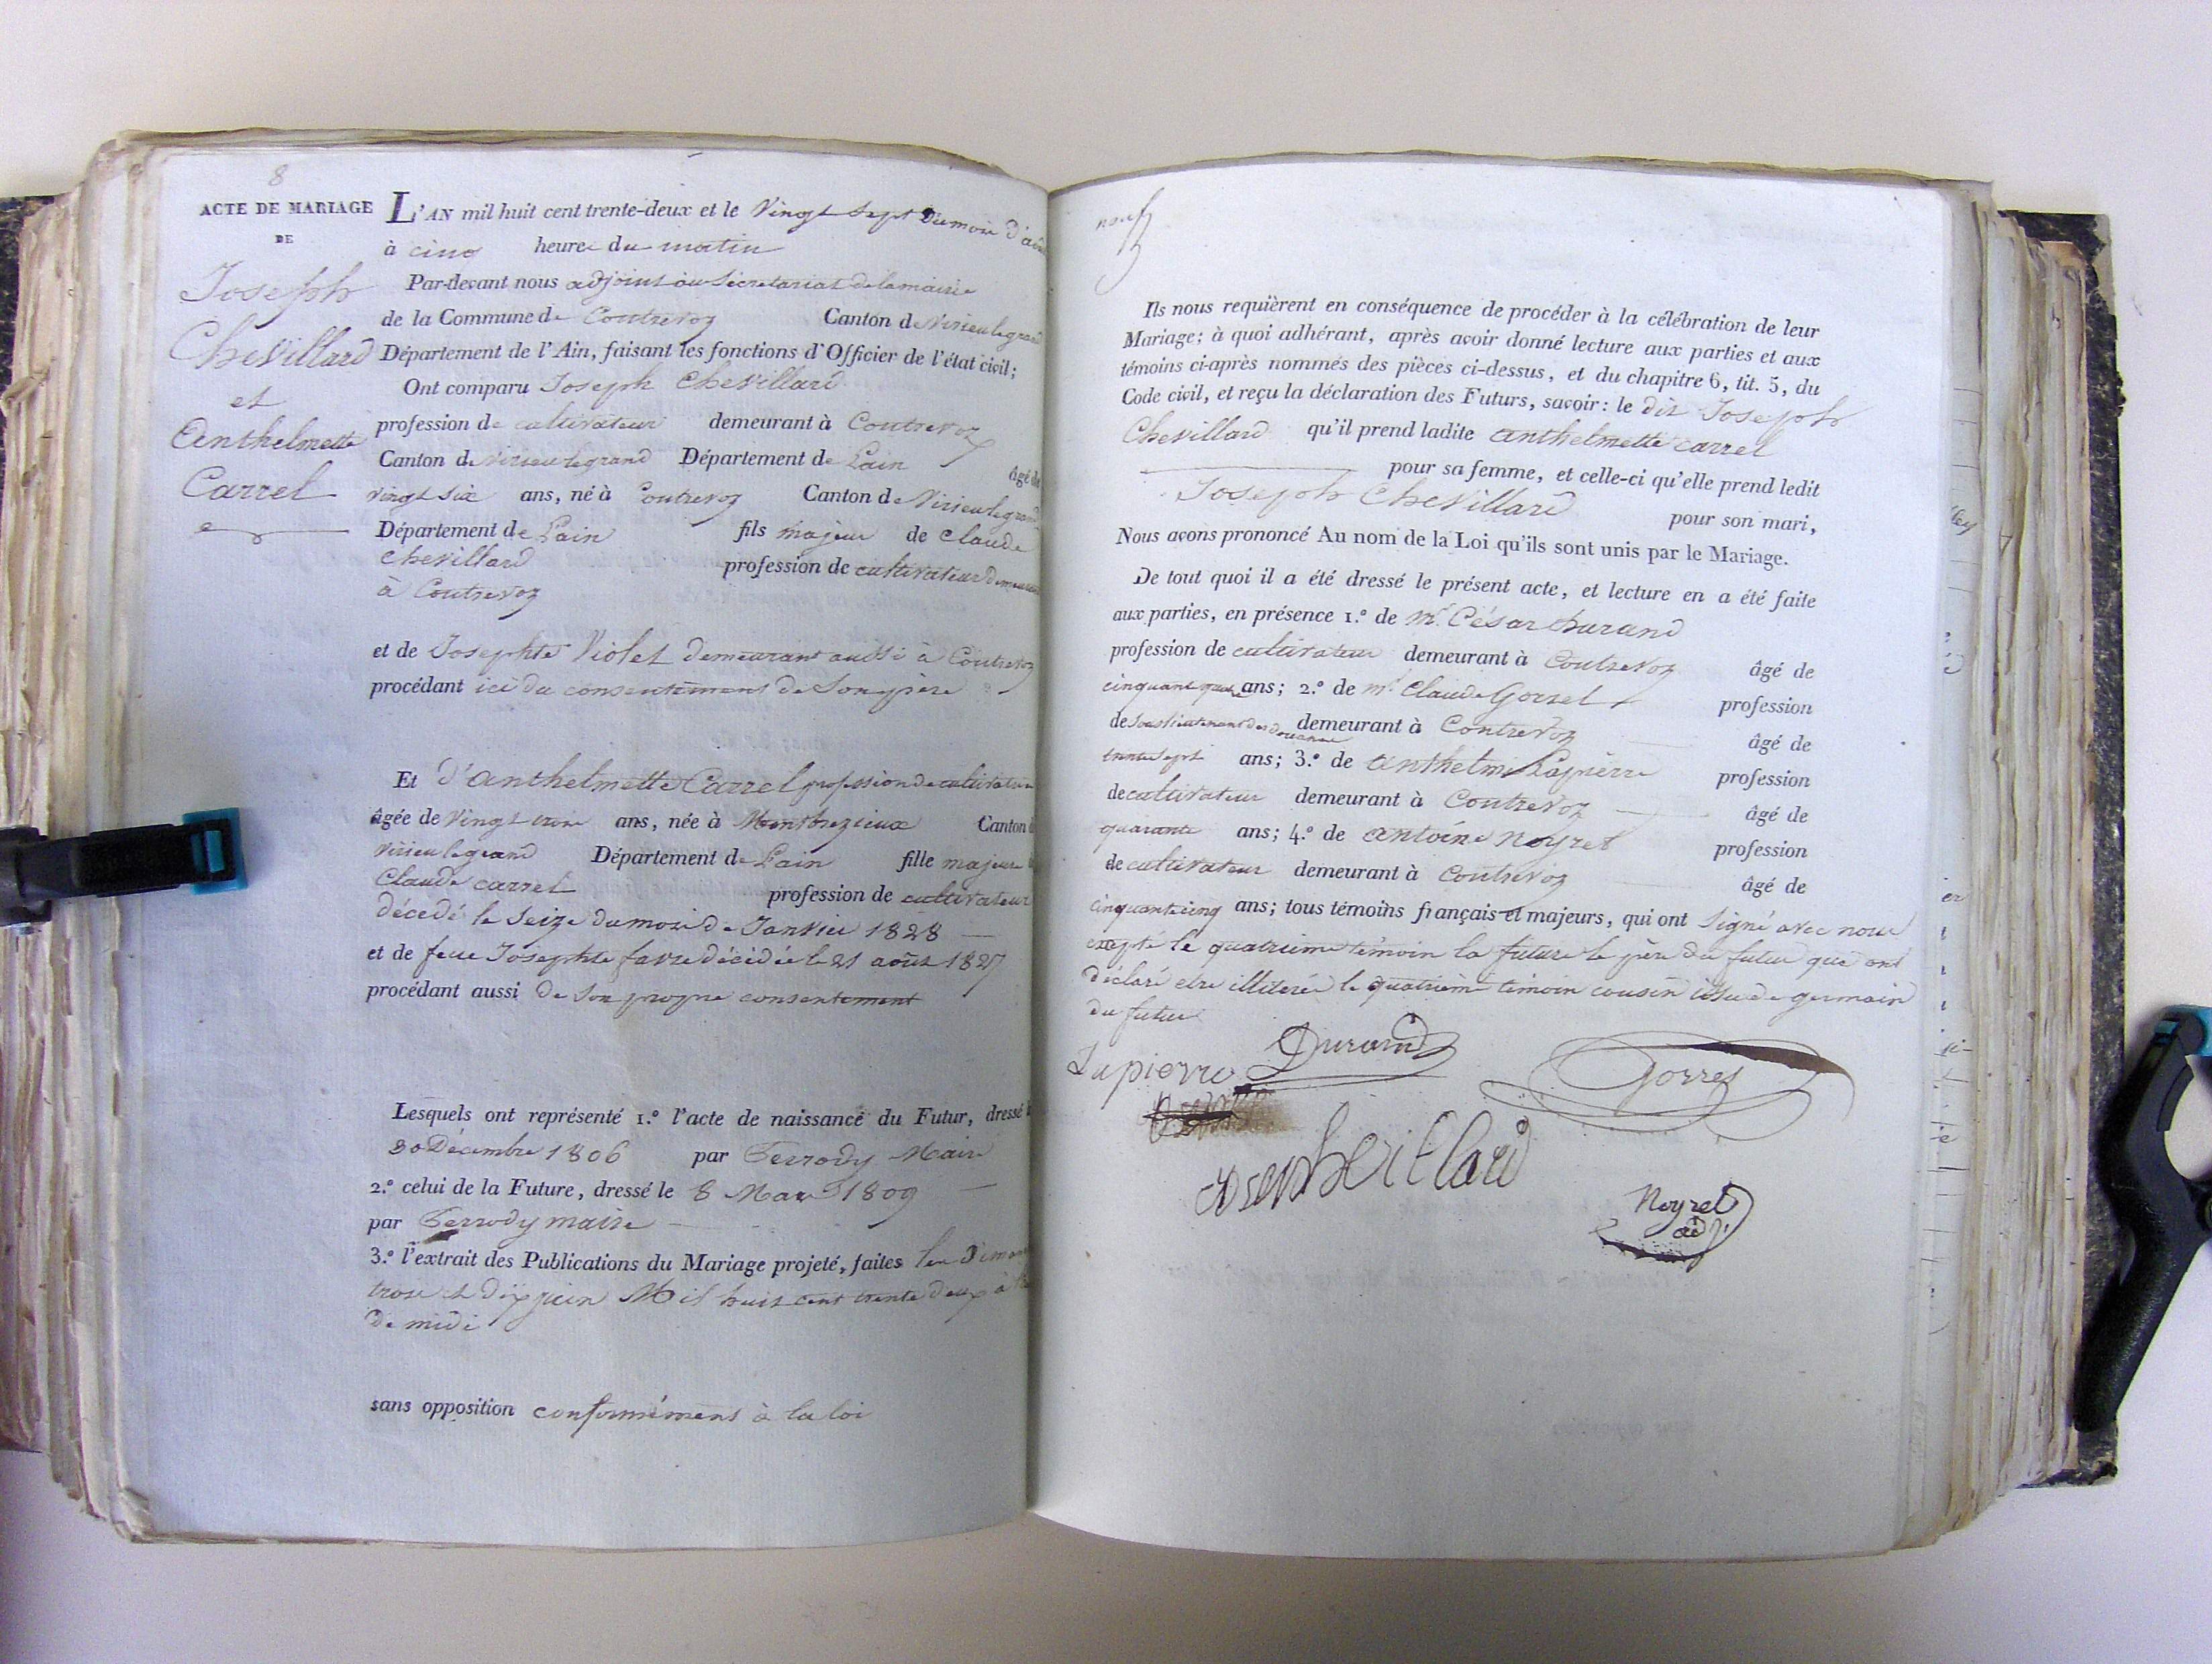 8
ACTE DE MARIAGE
DE
Joseph
Chevillard
et
Anthelmette
Carrel
L'AN mil huit cent trente-deux et le vingt sept du mois d'août
à cinq heures du matin
Par-devant nous adjoint au Secretariat de la mairie
de la Commune de Contrevoz Canton de virieu le grand
Département de l'Ain, faisant les fonctions d'Officier de l'état civil;
Ont comparu Joseph Chevillard
profession de cultivateur demeurant à Contrevoz
Canton de virieu le grand Département de Lain âgé de
vingt six ans, né à Contrevoz Canton de Virieu le grand
Département de Lain fils majeur de Claude
Chevillard profession de cultivateur demeurant
à Contrevoz
et de Josephte Violet demeurant aussi à Contrevoz
procédant ici du consentement de Son père
Et d'anthelmette Carrel profession de cultivatrice
âgée de Vingt trois ans, née à Montbrezieux Canton de
virieu le grand Département de Lain fille majeure
Claude carrel profession de cultivateur
décédé le Seize du mois de Janvier 1828
et de feue Josephte favre décédée le 21 août 1827
procédant aussi de Son propre consentement
Lesquels ont représenté 1.º l'acte de naissance du Futur, dressé
30 Décembre 1806 par Ferrody Maire
2.º celui de la Future, dressé le 8 Mars 1809
par Ferrody maire
3.º l'extrait des Publications du Mariage projeté, faites les
trois et dix juin Mil huit cent trente deux
de midi
sans opposition conformément à la loi
neuf
Ils nous requièrent en conséquence de procéder à la célébration de leur
Mariage; à quoi adhérant, après avoir donné lecture aux parties et aux
témoins ci-après nommés des pièces ci-dessus, et du chapitre 6, tit. 5, du
Code civil, et reçu la déclaration des Futurs, savoir: le dit Joseph
Chevillard qu'il prend ladite anthelmette carrel
pour sa femme, et celle-ci qu'elle prend ledit
Joseph Chevillard pour son mari,
Nous avons prononcé Au nom de la Loi qu'ils sont unis par le Mariage.
De tout quoi il a été dressé le présent acte, et lecture en a été faite
aux parties, en présence 1.º de mr. César Durand
profession de cultivateur demeurant à Contrevoz âgé de
cinquant quatre ans; 2.º de mr. Claude Gorrel profession
de Souslieutenant des douanes demeurant à Contrevoz âgé de
trente Sept ans; 3.º de Anthelme Lapierre profession
de cultivateur demeurant à Contrevoz âgé de
quarante ans; 4.º de antoine Noyret profession
de cultivateur demeurant à Contrevoz âgé de
cinquante cinq ans; tous témoins français et majeurs, qui ont Signé avec nous
excepté le quatrieme témoin la future le père du futur qui ont
déclaré etre illiterés le quatrième témoin cousin issu de germain
du futur
Lapierre Durand Gorrel
Noyret
adj.